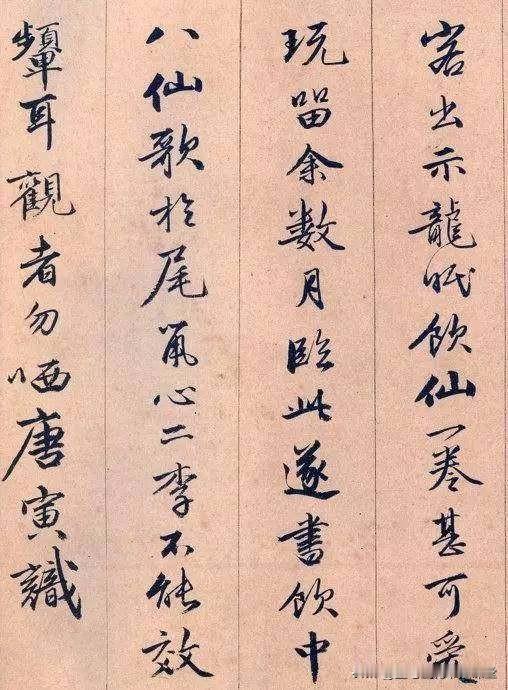 出示龍眠飲仙一卷甚可愛
玩留余数月臨此遂書飲中
八仙歌於尾鼠心二李不能效
顰耳觀者勿哂唐寅識